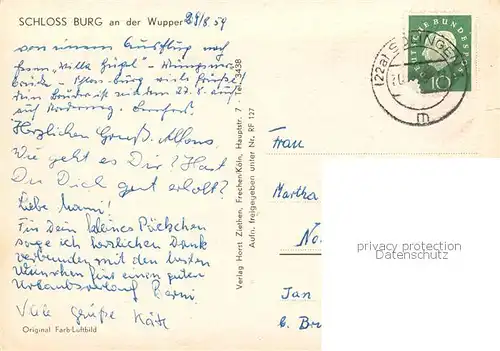 SCHLOSS BURG an der Wupper 29/8.59
von einem Ausflug nach
"Villa Hügel" - 
Schloss-burg viele Grüße!
27.8. auf
auf
Herzlichen Gruß. Alfons.
Wie geht es Dir? Hast
Du Dich gut erholt?
Liebe Mami!
Für Dein kleines Päckchen
sage ich herzlichen Dank
verbunden mit den besten
Wünschen für einen guten
Urlaubsverlauf
Viele Grüße Käte
Original Farb-Luftbild
Verlag Horst Ziethen, Frechen/Köln, Hauptstr. 7 - Tel. 3438
Auth. freigegeben unter Nr. RF 127
(22a) SOLINGEN
m
DEUTSCHE BUNDESPOST
10
Frau
Martha
No.
Jan
b. Br
privacy protection
Datenschutz